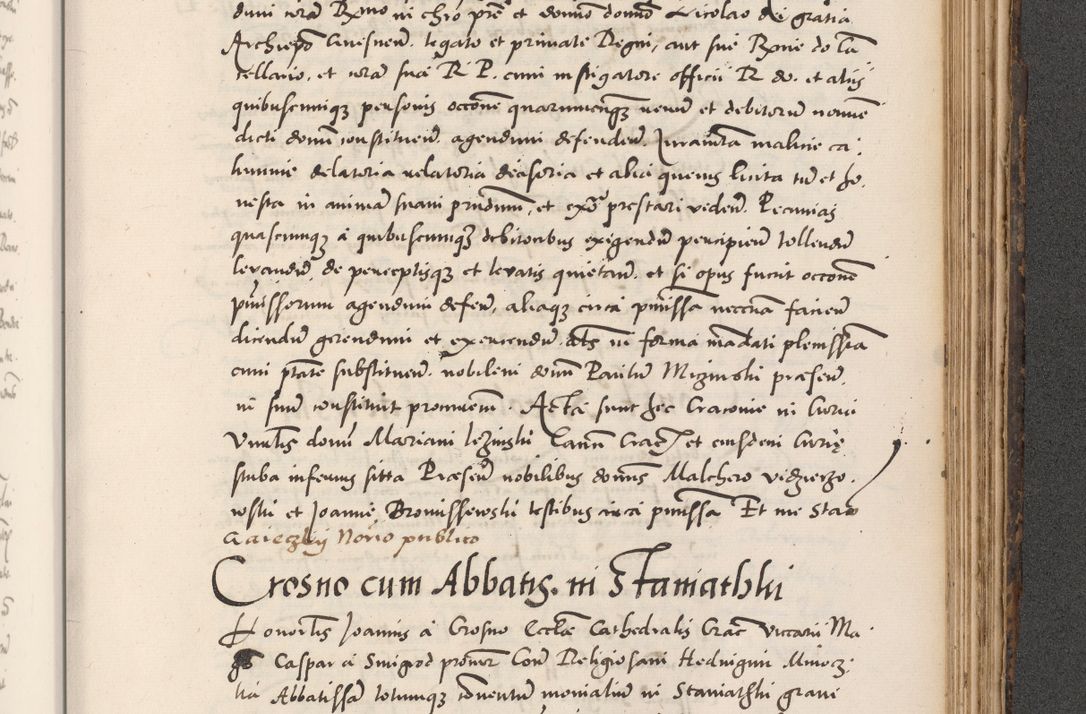 duni coram Rxmo in chro pre et domino domno Nicolao dei gratia
Archiepo Gnesnen. legato et primate Regni, aut sue Rxme do Can
cellario, et coram suei R P. cum instigatore officii R do. et aliis
quibuscunqz personis occone quarumcunqz rerum et debitorum nomine
dicti domini constituen. agendum defenden. Juramta malicie ca
lumnie delatoria relatoria decisoria et alia quevis licita tum et ho
nesta in animam suam prndum, et exo prestari viden. Pecunias
quascunqz a quibuscunqz debitoribus exigendum percipien tollendum
levandum de perceptisqz et levatis quietan. et si opus fuerit occone
pmissorum agendum defen, aliaqz circa pmissa necna facien
dicendum gerendum et exercendum. als in forma mandati plenissima
cum ptate substituen. nobilem domin Paulum Mizinski presen.
in suum constituit procurem. Acta sunt hec Cracovie in Curia
Vnrlis domini Mariani lezinski Canon Crac et eiusdem Curie
stuba inferius sitta Presen nobilibus domis Malchero vedzierzo
wski et Joanne Bronissewski testibus circa pmissa Et me Stan
Gaieczky Norio publico
Crosno cum Abbatis. in Staniathki
Honorlis Joannis a Crosno Eccle Cathedralis Crac Vicarii Ma
grs Caspar a Smigrod procurer Con Religiosam Hedwigim
lia Abbatissam totumqz conventum monialium in Staniathki grave